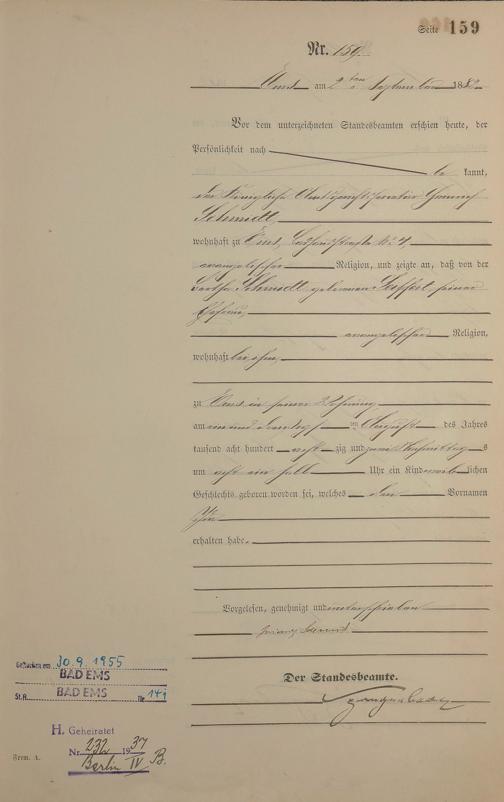 Seite 159
Nr. 159.
Ems am 2ten September 1882.
Vor dem unterzeichneten Standesbeamten erschien heute, der
Persönlichkeit nach
be kannt,
der Königliche Amtsgerichtssecretär Heinrich
Schmidt,
wohnhaft zu Ems, No 4
evangelischer Religion, und zeigte an, daß von der
Schmidt geborenen Seiffert, seiner
Ehefrau,
evangelischer Religion,
wohnhaft bei ihm,
zu Ems in seiner Wohnung
am ein und dreißigsten August des Jahres
tausend acht hundert acht zig und zwei Nachmittags
um acht ein halb Uhr ein Kind weiblichen
Geschlechts geboren worden sei, welches den Vornamen
erhalten habe.
Vorgelesen, genehmigt und unterschrieben
Der Standesbeamte.
Gestorben am 30.9.1955
BAD EMS
St.A. BAD EMS Nr 141
H. Geheiratet
Nr. 232 1937
Berlin IV B.
Form. A.